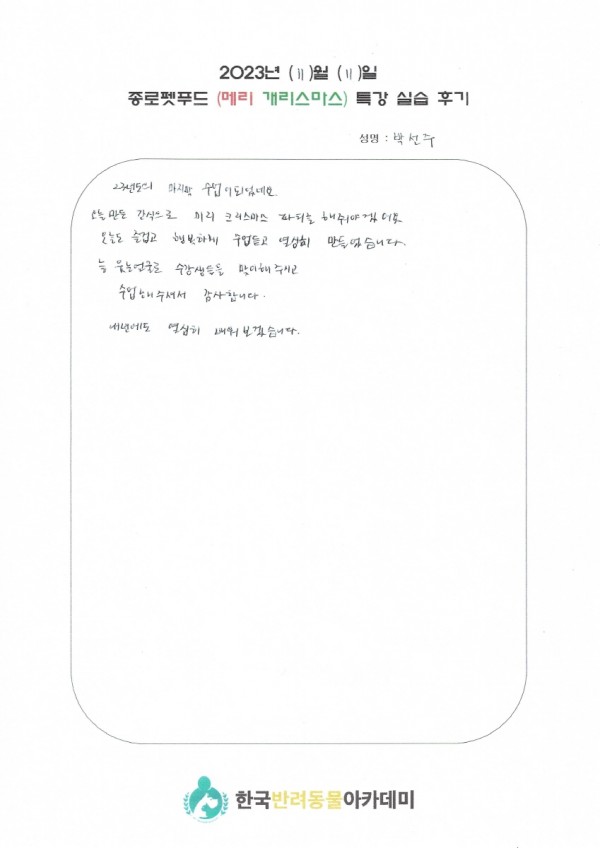 2023년 (11)월 (11)일
종로펫푸드 (메리 개리스마스) 특강 실습 후기
성명 : 박선주
23년도의 마지막 수업이되었네요
오늘 만든 간식으로 미리 크리스마스 파티를 해줘야겠어요
오늘도 즐겁고 행복하게 수업듣고 열심히 만들었습니다.
늘 웃는얼굴로 수강생들을 맞이해주시고
수업해주셔서 감사합니다.
내년에도 열심히 배워보겠습니다.
한국반려동물아카데미